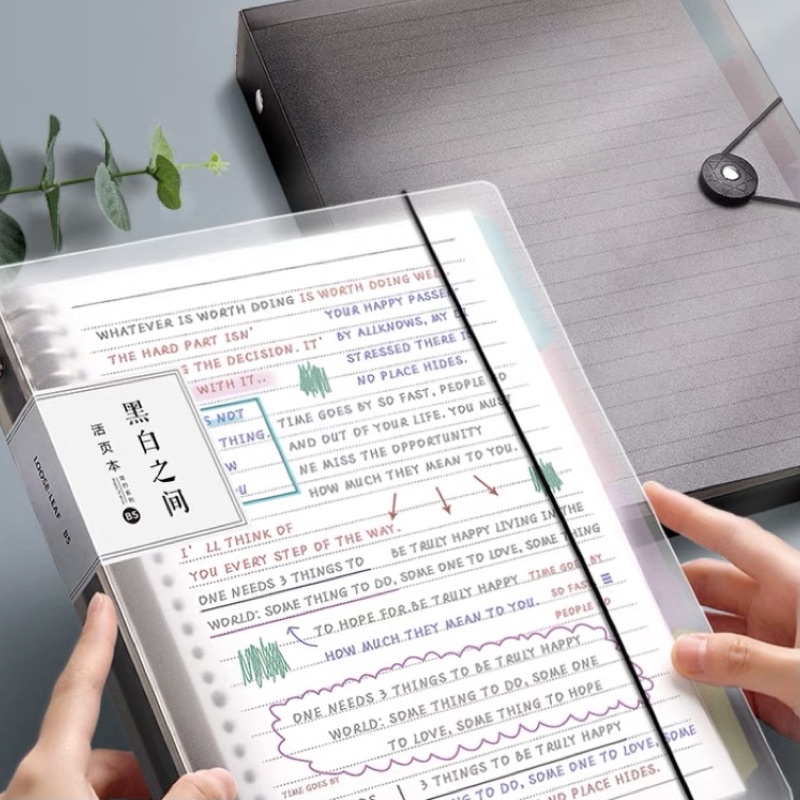 WHATEVER IS WORTH DOING IS WORTH DOING WELL.
THE HARD PART ISN'
THE DECISION. IT'
WITH IT..
YOUR HAPPY PASSE
BY ALLKNOWS, MY
STRESSED THERE I
NO PLACE HIDES.
S NOT
THING.
W
U
TIME GOES BY SO FAST, PEOPLE GO
AND OUT OF YOUR LIFE. YOU MUST
NE MISS THE OPPORTUNITY
HOW MUCH THEY MEAN TO YOU.
黑白之间
活页本
B5
LOOSE-LEAF B5
I' LL THINK OF
YOU EVERY STEP OF THE WAY.
BE TRULY HAPPY LIVING IN THE
ONE NEEDS 3 THINGS TO
WORLD: SOME THING TO DO, SOME ONE TO LOVE, SOME THING
TO HOPE FOR BE TRULY HAPPY
TIME GOES BY
SO FAST
PEOPLE GO
HOW MUCH THEY MEAN TO YOU.
ONE NEEDS 3 THINGS TO BE TRULY HAPPY
WORLD: SOME THING TO DO, SOME ONE
TO LOVE, SOME THING TO HOPE
TIME GOES BY
3 THINGS TO BE TRULY HAPPY
TO DO, SOME ONE TO LOVE, SOME
NO PLACE HIDES.